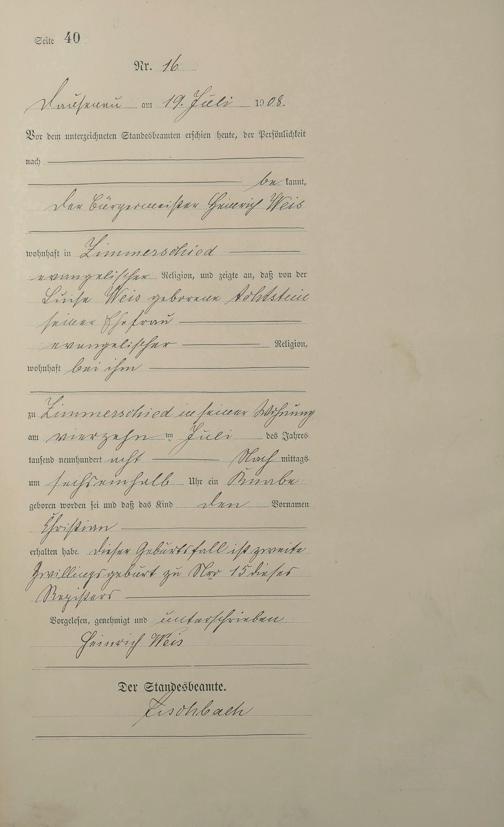 Seite 40
Nr. 16
Dausenau am 19. Juli 1908.
Vor dem unterzeichneten Standesbeamten erschien heute, der Persönlichkeit
nach
be kannt,
der Bürgermeister Heinrich Weis
wohnhaft in Zimmerschied
evangelischer Religion, und zeigte an, daß von der
Luise Weis geborene
seiner Ehefrau
evangelischer Religion,
wohnhaft bei ihm
zu Zimmerschied in seiner Wohnung
am vierzehn ten Juli des Jahres
tausend neunhundert acht Nach mittags
um sechseinhalb Uhr ein Knabe
geboren worden sei und daß das Kind den Vornamen
Christian
erhalten habe. Dieser Geburtsfall ist zweite
Zwillingsgeburt zu Nro 15 dieses
Registers
Vorgelesen, genehmigt und unterschrieben
Heinrich Weis
Der Standesbeamte.
Fischbach